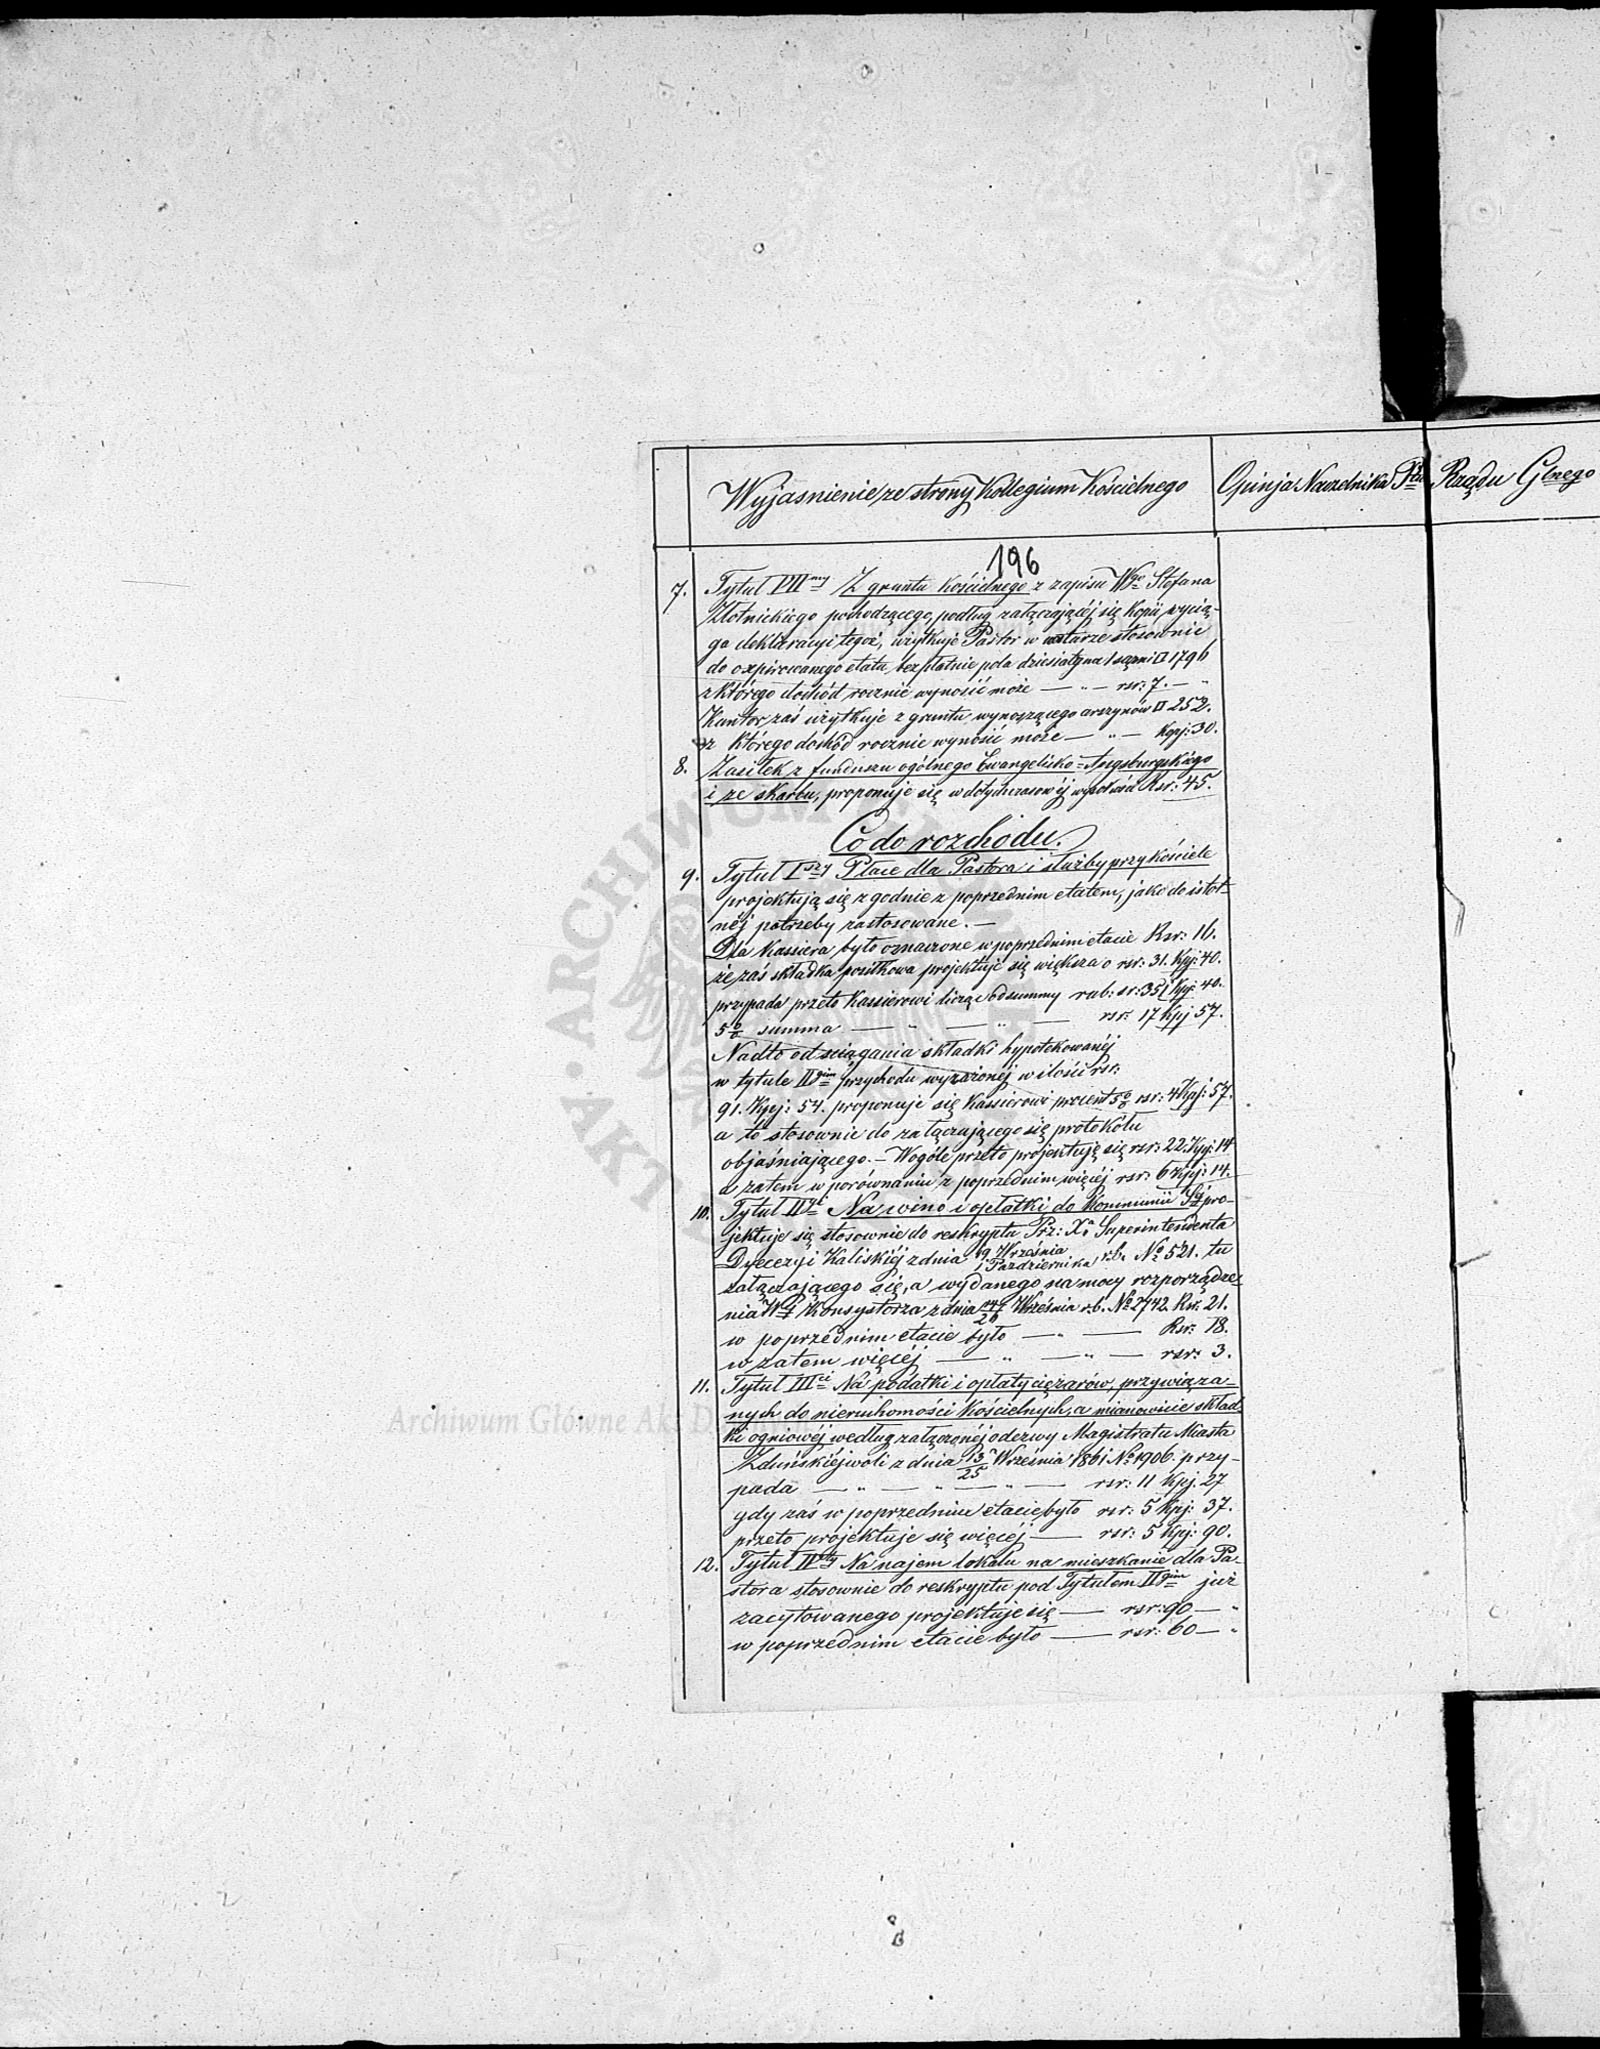 Wyjasnienie ze strony Kollegium Kościelnego
Opinja Naczelnika Ptu
Rządu Glnego
196
7. Tytuł VIImy Z gruntu Kościelnego z zapisu Wgo Stefana
Złotnickiego pochodzącego, podług załączającéj się Kopii, wycią-
gu deklaracyi tegoż, użytkuje Pastor w naturze stosownie
do expirowanego etatu, bezpłatnie pola dziesiatyna 1 sążni □ 1796
z którego dochód rocznie wynosić może — „ — rsr: 7. — „
Kantor zaś użytkuje z gruntu wynoszącego arszynów □ 252.
z którego dochód rocznie wynosić może — „ — Kpj: 30.
8. Zasiłek z funduszu ogólnego Ewangelicko-Augsburgskiégo
i ze skarbu, proponuje się w dotychczasowéj wysokości Rsr: 45.
Co do rozchodu.
9. Tytuł Iszy Płace dla Pastora i służby przy kościele
projektują się zgodnie z poprzednim etatem, jako do istot-
néj potrzeby zastosowane. —
Dla Kassiera było oznaczone w poprzednim etacie Rsr: 16.
że zaś składka posiłkowa projektuje się większa o rsr: 31. Kpj: 40.
przypada przeto Kassierowi licząc od summy rub: sr: 351 Kpj: 40.
5% summa — „ — „ — rsr: 17 Kpj 57.
Nadto od sciągania składki hypotekowanéj
w tytule IIgim przychodu wyrażonéj w ilości rsr:
91. Kpj: 54. proponuje się Kassierowi procent 5% rsr: 4 Kpj: 57.
a to stosownie do załączającego się protokółu
objaśniającego. — Wogóle przeto projektuję się rsr: 22. Kpj: 14
a zatem w porównaniu z poprzednim więcéj rsr: 6 Kpj: 14.
10. Tytuł IIgi Na wino i opłatki do Kommunii Sej pro-
jektuje się stosownie do reskryptu Prz: Xa Superintendenta
Dyecezyi Kaliskiéj z dnia 19 Września / 1 Pazdziernika r.b. No 521. tu
załączającego się, a wydanego na mocy rozporządze-
nia Wgo Konsystorza z dnia 14/26 Września r.b. No 2742. Rsr. 21.
w poprzednim etacie było — „ — Rsr: 18.
w zatem więcéj — „ — „ — rsr: 3.
11. Tytuł IIIci Na podatki i opłaty ciężarów, przywiąza-
nych do nieruchomości Kościelnych, a mianowicie skład-
ki ogniowéj według załączonéj odezwy Magistratu Miasta
Zduńskiéjwoli z dnia 13/25 Września 1861 No 1906. przy-
pada — „ — „ — „ — rsr: 11 Kpj. 27
gdy zaś w poprzednim etacie było rsr: 5 Kpj: 37.
przeto projektuje się więcéj — rsr: 5 Kpj: 90.
12. Tytuł IVty Na najem lokalu na mieszkanie dla Pa-
stora stosownie do reskryptu pod Tytułem IIgim już
zacytowanego projektuje się — rsr: 90 — „
w poprzednim etacie było — rsr: 60 — „
ARCHIWUM
AKT
Archiwum Główne Akt D